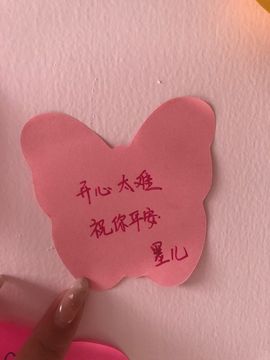 开心太难
祝你平安
星儿